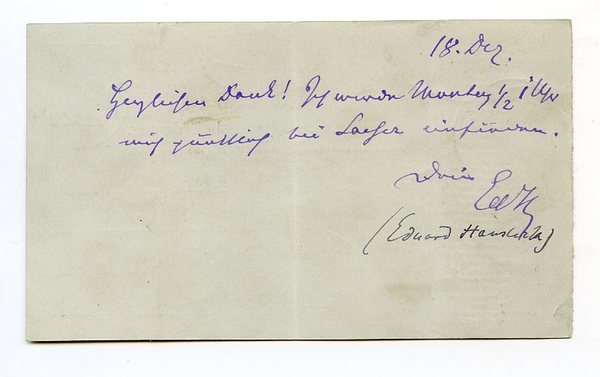 18. Dez.
Herzlichen Dank! Ich werde Montag ½ 1 Uhr
mich pünktlich bei Sacher einfinden.
Dein EdH
(Eduard Hanslick)